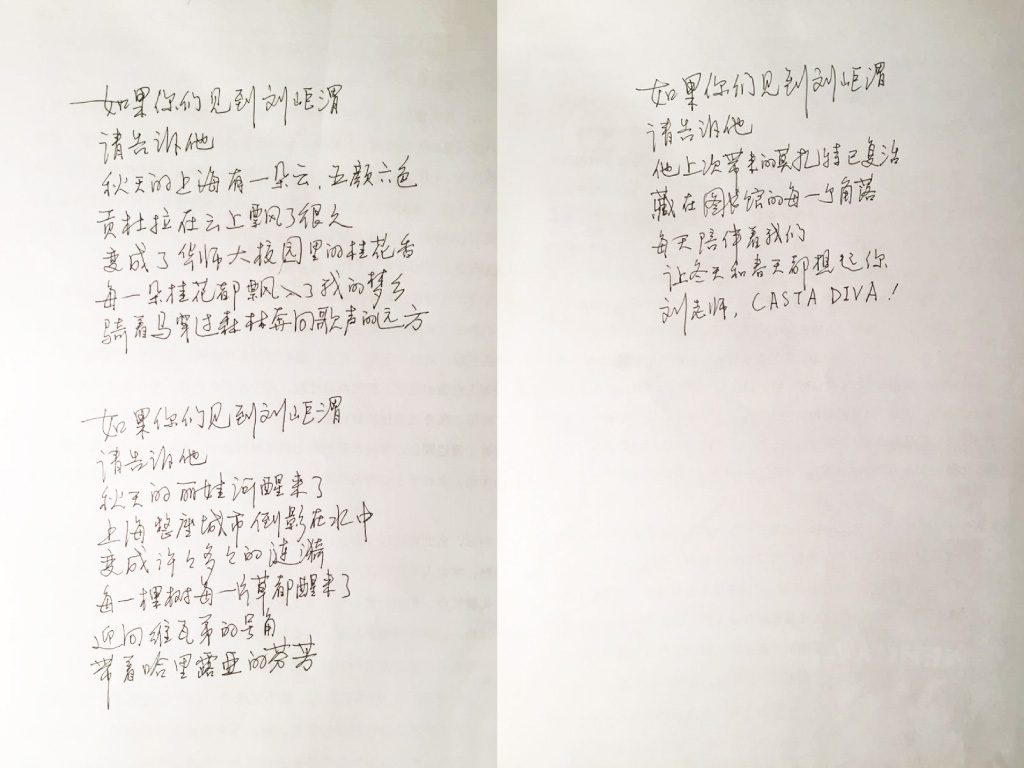 如果你们见到刘岠渭
请告诉他
秋天的上海有一朵云，五颜六色
贡杜拉在云上飘了很久
变成了华师大校园里的桂花香
每一朵桂花都飘入了我的梦乡
骑着马穿过森林奔向歌声的远方
如果你们见到刘岠渭
请告诉他
秋天的丽娃河醒来了
上海整座城市倒影在水中
变成许许多多的涟漪
每一棵树每一片草都醒来了
迎向维瓦第的号角
带着哈里露亚的芬芳
如果你们见到刘岠渭
请告诉他
他上次带来的莫扎特已复活
藏在图书馆的每一个角落
每天陪伴着我们
让冬天和春天都想起你
刘老师，CASTA DIVA！